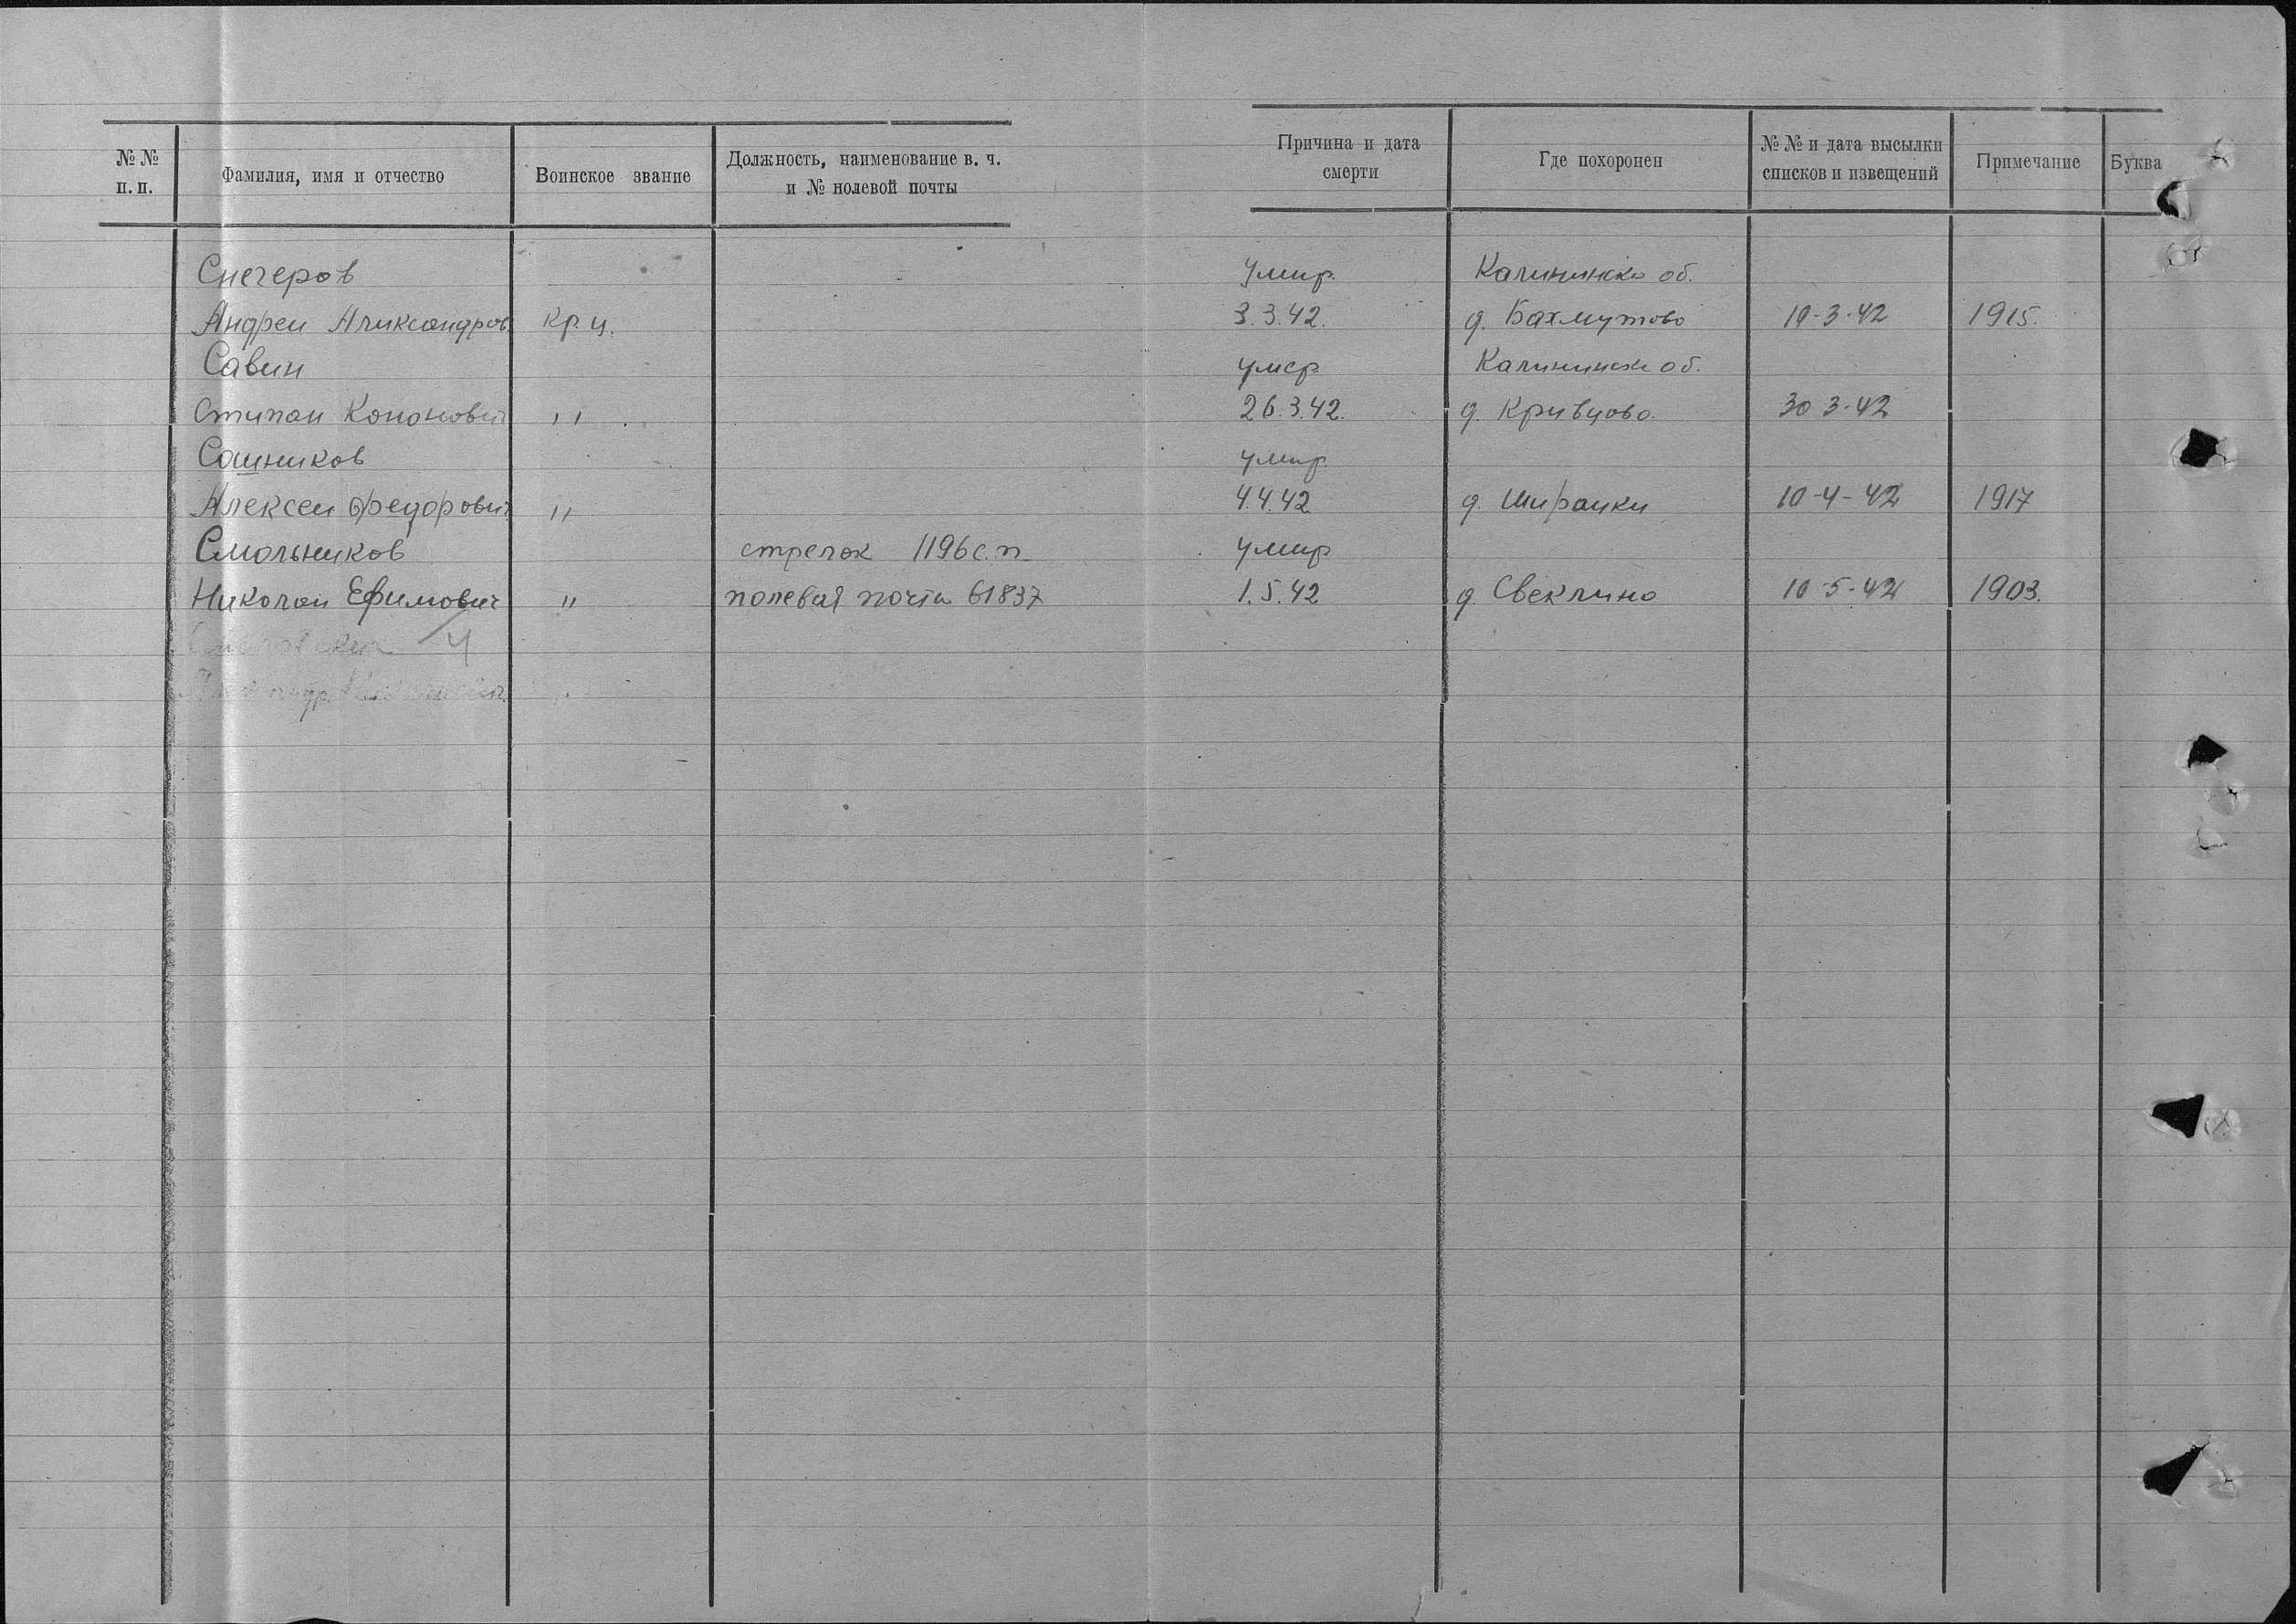 № № п. п. Фамилия, имя и отчество Воинское звание Должность, наименование в. ч. и № полевой почты Причина и дата смерти Где похоронен № № и дата высылки списков и извещений Примечание Буква
Снегеров умир. Калининско об.
Андреи Александров. Кр. ц. 3.3.42. д. Бахмутово 19-3-42 1915.
Савин умер Калининск об.
Степан Кононович " 26.3.42. д. Кривцово. 30 3-42
Сашников умир.
Алексеи Федорович " 4.4.42 д. Ширанки 10-4-42 1917
Смольников стрелок 1196 с.п умир
Николаи Ефимович " полевая почта 61837 1.5.42 д. Свеклино 10-5-42 1903.
4